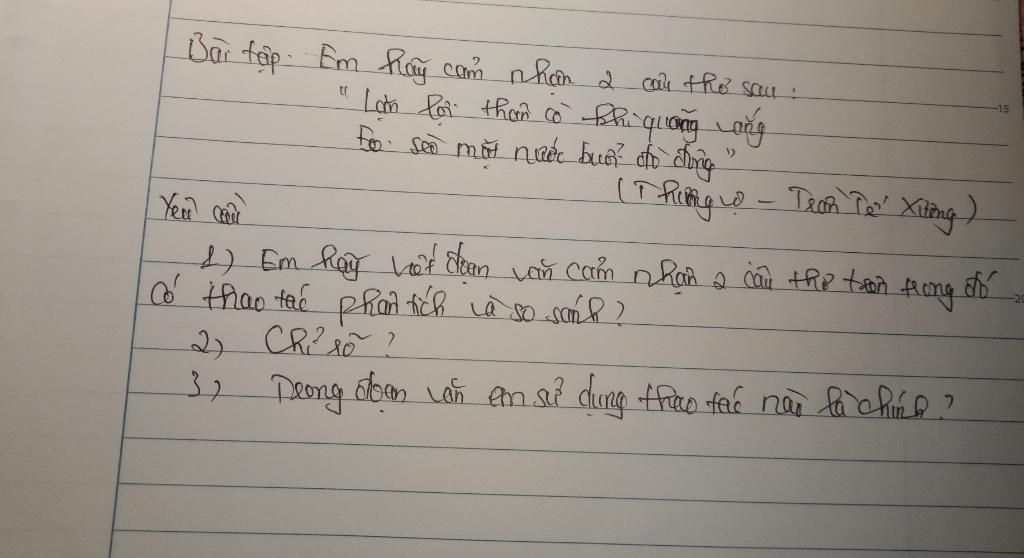 Bài tập. Em hãy cảm nhận 2 câu thơ sau:
15
"Lặn lội thân cò khi quãng vắng
Eo sèo mặt nước buổi đò đông"
(Thương vợ – Trần Tế Xương)
Yêu cầu
1) Em hãy viết đoạn văn cảm nhận 2 câu thơ trên trong đó
20
Có thao tác phân tích và so sánh?
2) Chỉ rõ?
3) Trong đoạn văn em sử dụng thao tác nào là chính?